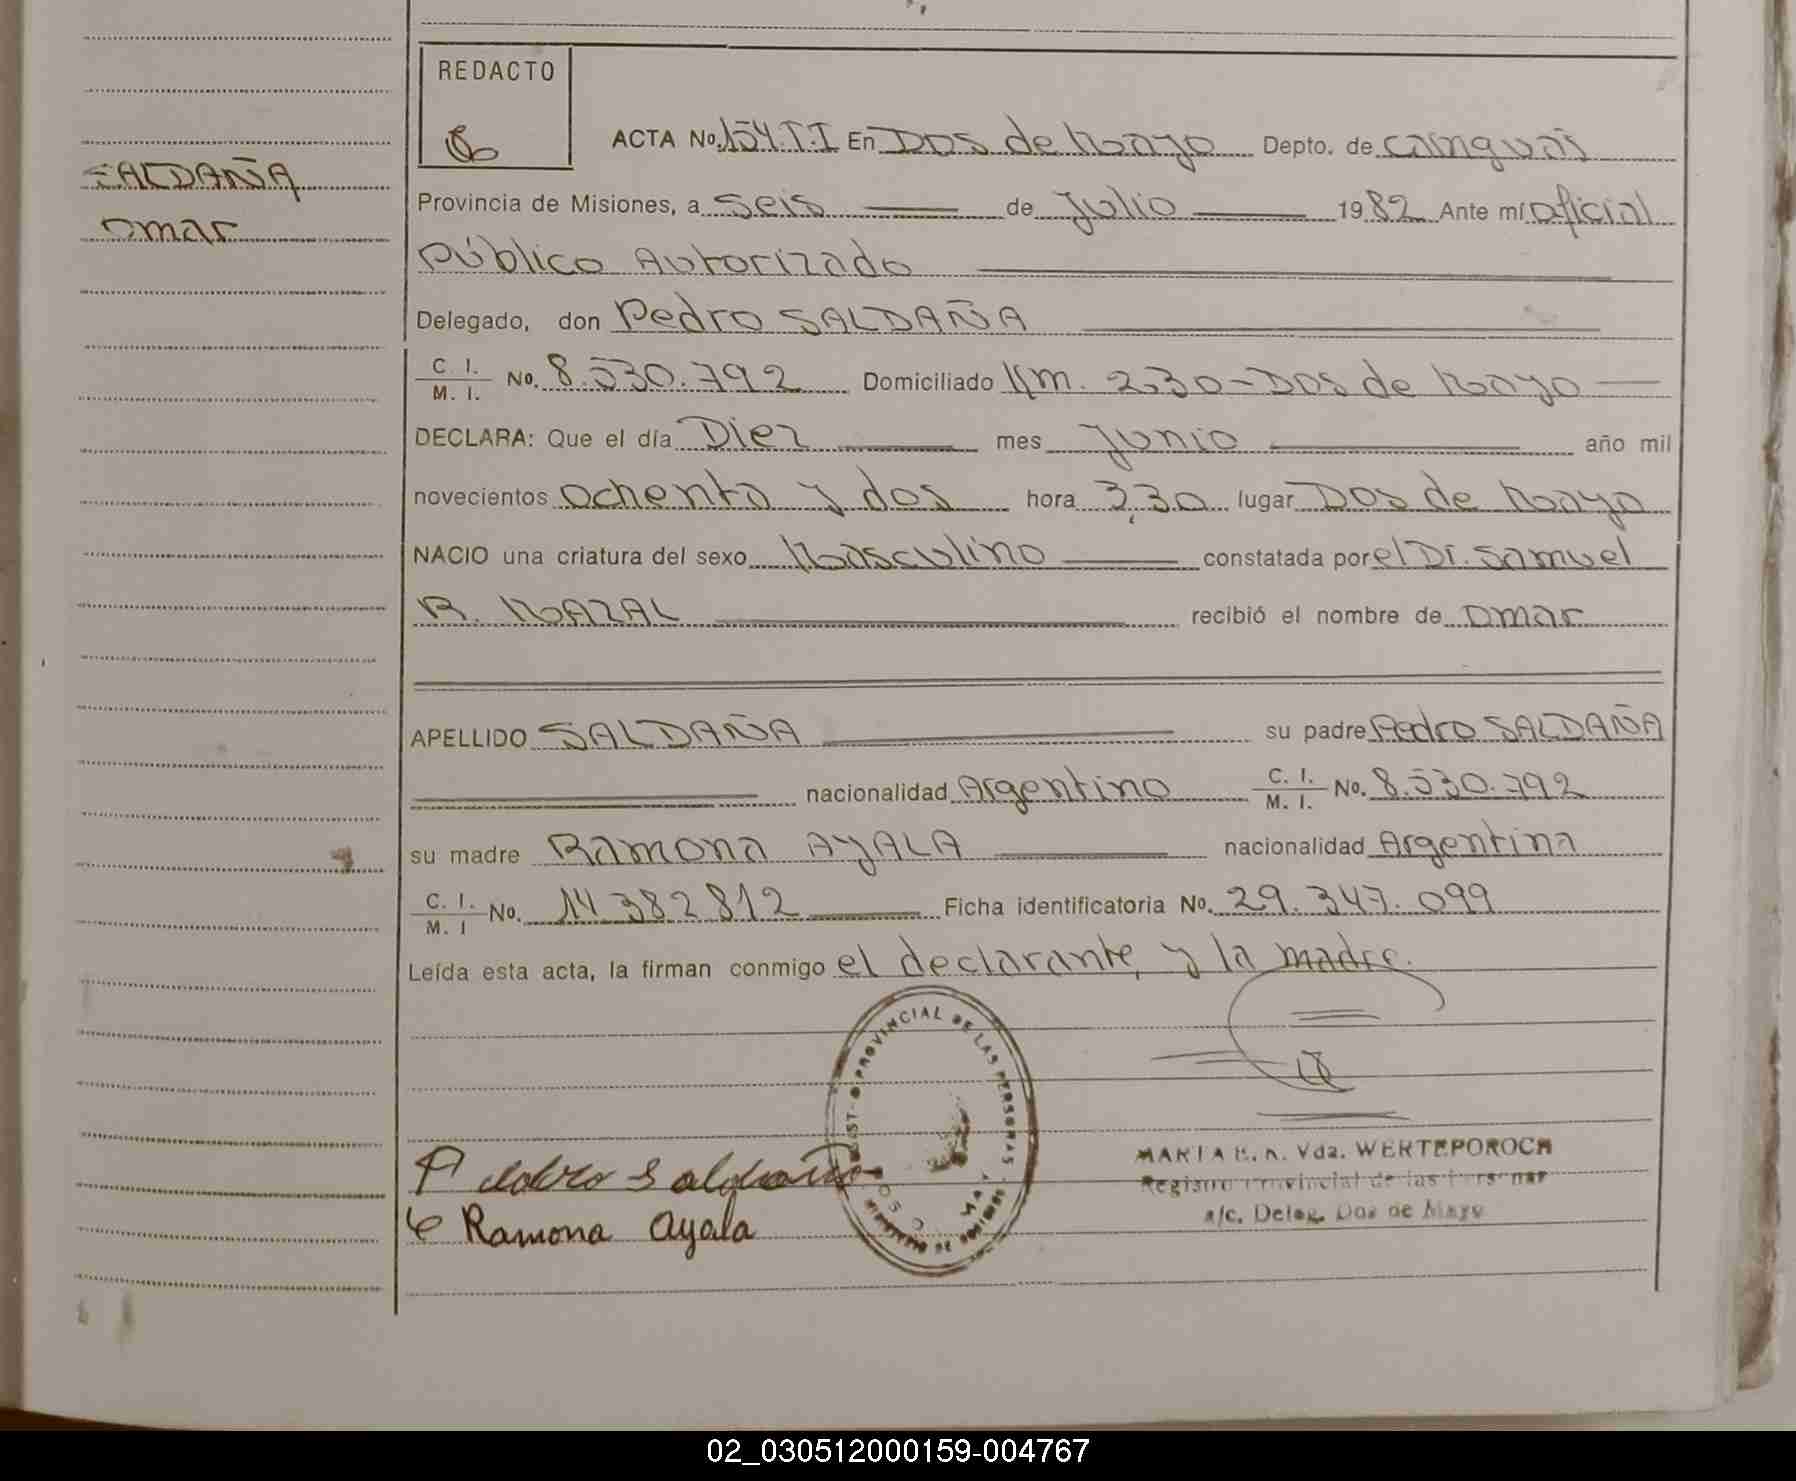 REDACTO
SALDAÑA
Omar
ACTA No. 154.T.I En Dos de Mayo Depto. de Cainguás
Provincia de Misiones, a Seis de Julio 1982 Ante mí Oficial
Público Autorizado
Delegado, don Pedro SALDAÑA
C. I.
M. I. No. 8.530.792 Domiciliado Km. 230-Dos de Mayo
DECLARA: Que el día Diez mes Junio año mil
novecientos ochenta y dos hora 3,30 lugar Dos de Mayo
NACIO una criatura del sexo Masculino constatada por el Dr. Samuel
R. MAZAL recibió el nombre de Omar
APELLIDO SALDAÑA su padre Pedro SALDAÑA
nacionalidad Argentino C. I.
M. I. No. 8.530.792
su madre Ramona AYALA nacionalidad Argentina
C. I.
M. I No. 14.382812 Ficha identificatoria No. 29.347.099
Leída esta acta, la firman conmigo el declarante, y la madre.
PROVINCIAL DE LAS PERSONAS
MARIA E. K. Vda. WERTEPOROCH
Registro Provincial de las Personas
a/c. Deleg. Dos de Mayo
Pedro Saldaña
Ramona Ayala
02_030512000159-004767